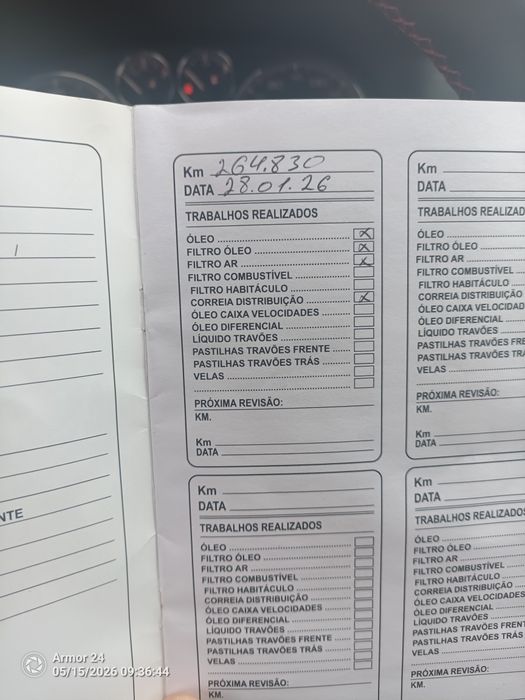 Km 264.830
DATA 28.01.26
TRABALHOS REALIZADOS
ÓLEO
FILTRO ÓLEO
FILTRO AR
FILTRO COMBUSTÍVEL
FILTRO HABITÁCULO
CORREIA DISTRIBUIÇÃO
ÓLEO CAIXA VELOCIDADES
ÓLEO DIFERENCIAL
LÍQUIDO TRAVÕES
PASTILHAS TRAVÕES FRENTE
PASTILHAS TRAVÕES TRÁS
VELAS
PRÓXIMA REVISÃO:
KM.
Km
DATA
Km
DATA
TRABALHOS REALIZAD
ÓLEO
FILTRO ÓLEO
FILTRO AR
FILTRO COMBUSTÍVEL
FILTRO HABITÁCULO
CORREIA DISTRIBUIÇÃO
ÓLEO CAIXA VELOCIDAD
ÓLEO DIFERENCIAL
LÍQUIDO TRAVÕES
PASTILHAS TRAVÕES FRE
PASTILHAS TRAVÕES TRÁ
VELAS
PRÓXIMA REVISÃO:
KM.
Km
DATA
Km
DATA
TRABALHOS REALIZADOS
ÓLEO
FILTRO ÓLEO
FILTRO AR
FILTRO COMBUSTÍVEL
FILTRO HABITÁCULO
CORREIA DISTRIBUIÇÃO
ÓLEO CAIXA VELOCIDADES
ÓLEO DIFERENCIAL
LÍQUIDO TRAVÕES
PASTILHAS TRAVÕES FRENTE
PASTILHAS TRAVÕES TRÁS
VELAS
PRÓXIMA REVISÃO:
KM.
Km
DATA
TRABALHOS REALIZADOS
ÓLEO
FILTRO ÓLEO
FILTRO AR
FILTRO COMBUSTÍVEL
FILTRO HABITÁCULO
CORREIA DISTRIBUIÇÃO
ÓLEO CAIXA VELOCIDADES
ÓLEO DIFERENCIAL
LÍQUIDO TRAVÕES
PASTILHAS TRAVÕES FRENT
PASTILHAS TRAVÕES TRÁS
VELAS
PRÓXIMA REVISÃO:
KM.
NTE
Armor 24
05/15/2026 09:36:44